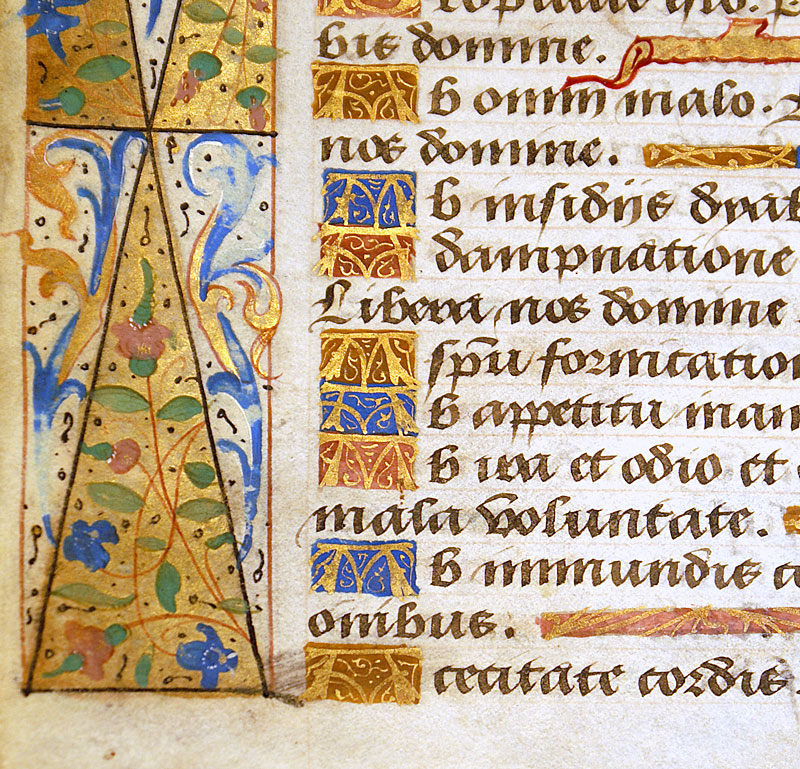 bis domine.
Ab omni malo.
nos domine.
Ab insidijs diab
A dampnatione
Libera nos domine
A spu fornicatio
Ab appetitu inan
Ab ira et odio et
mala voluntate.
Ab immundis
onibus.
A cecitate cordis.